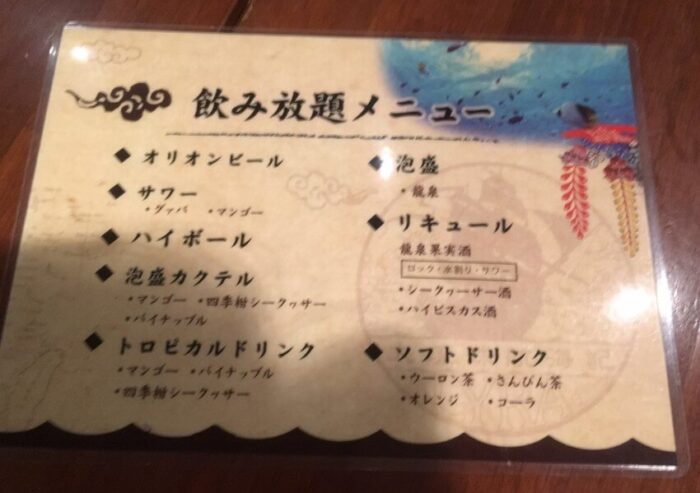 飲み放題メニュー
◆ オリオンビール
◆ サワー
・グァバ ・マンゴー
◆ ハイボール
◆ 泡盛カクテル
・マンゴー ・四季柑シークヮサー
・パイナップル
◆ トロピカルドリンク
・マンゴー ・パイナップル
・四季柑シークヮサー
◆ 泡盛
・龍泉
◆ リキュール
龍泉果実酒
ロック・水割り・サワー
・シークヮーサー酒
・ハイビスカス酒
◆ ソフトドリンク
・ウーロン茶 ・さんぴん茶
・オレンジ ・コーラ